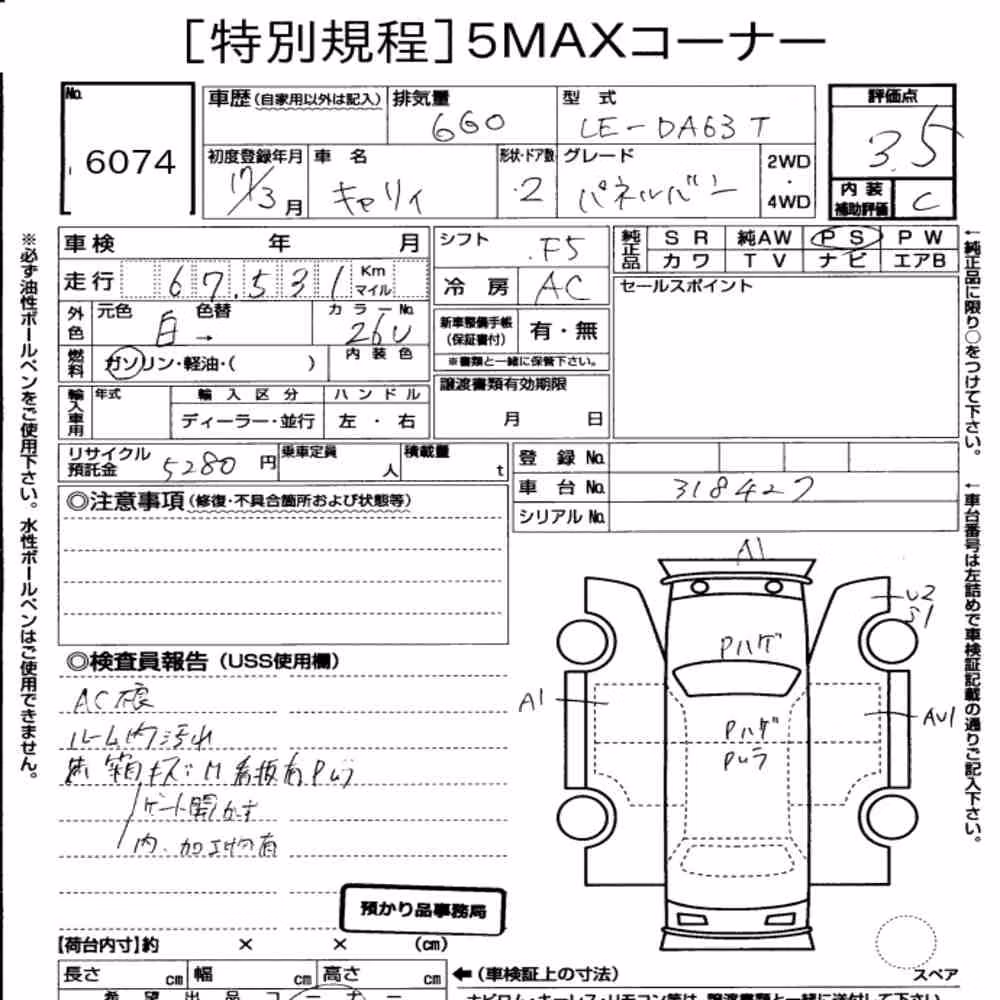 [特別規程]5MAXコーナー
No. 6074
車歴(自家用以外は記入) 排気量 660 型式 LE-DA63T
評価点 3.5
初度登録年月 17/3月 車名 キャリィ 形状・ドア数 2 グレード パネルバン 2WD・4WD
内装補助評価 C
車検 年 月 シフト F5
純正品 SR 純AW PS PW
カワ TV ナビ エアB
走行 67,531 Km マイル 冷房 AC
セールスポイント
外色 元色 白 → 色替 カラーNo. 26U
新車整備手帳(保証書付) 有・無
※書類と一緒に保管下さい。
燃料 ガソリン・軽油・( ) 内装色
輸入車用 年式 輸入区分 ハンドル
ディーラー・並行 左・右
譲渡書類有効期限
月 日
リサイクル預託金 5280円 乗車定員 人 積載量 t
登録No.
車台No. 318427
シリアルNo.
◎注意事項(修復・不具合箇所および状態等)
◎検査員報告(USS使用欄)
ルーム内汚れ
ゲート開かず
内、加工物有
預かり品事務局
【荷台内寸】約 × × (cm)
長さ cm 幅 cm 高さ cm
←(車検証上の寸法)
A1
U2
S1
Pハゲ
A1
AU1
Pハゲ
Pムラ
スペア
※必ず油性ボールペンをご使用下さい。水性ボールペンはご使用できません。
←純正品に限り○をつけて下さい。
←車台番号は左詰めで車検証記載の通りご記入下さい。
希望出品コーナー